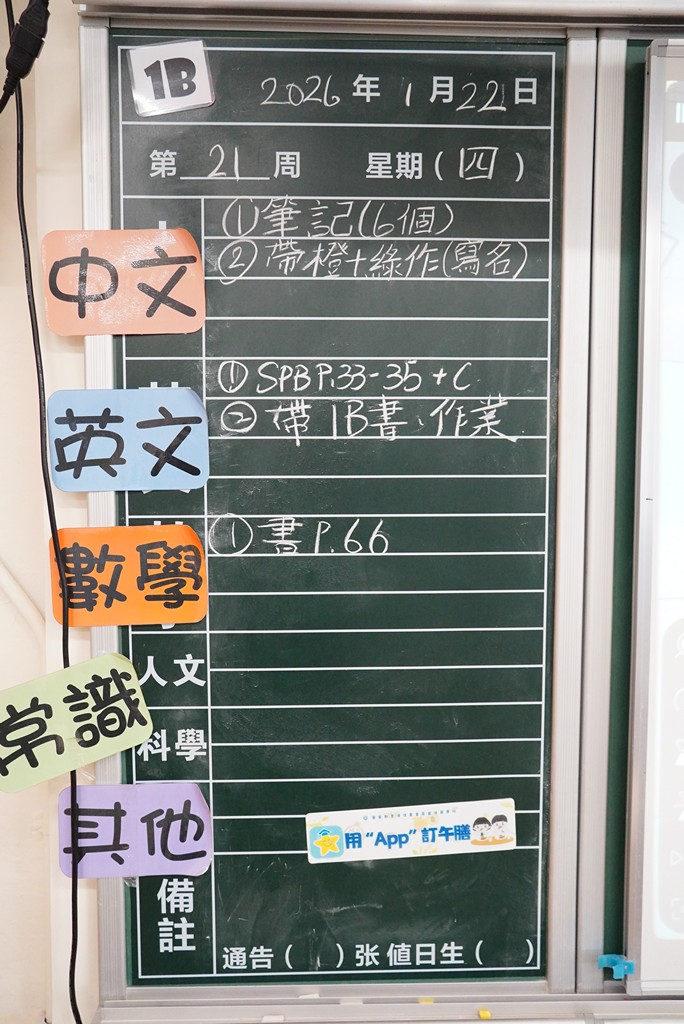 1B
2026年1月22日
第21周 星期(四)
中文
①筆記(6個)
②帶橙+綠作(寫名)
英文
①SPB P.33-35+C
②帶1B書、作業
數學
①書P.66
人文
常識
科學
其他
用“App”訂午膳
備註
通告( )张 值日生( )